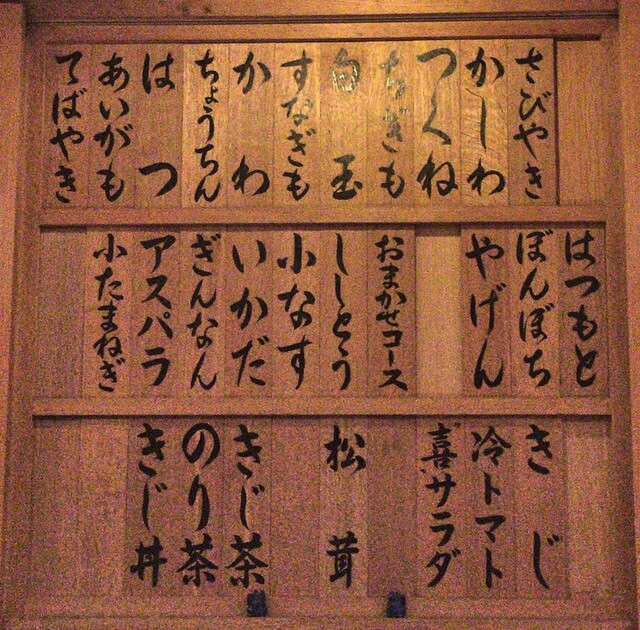 さびやき
かしわ
つくね
ちぎも
白玉
すなぎも
かわ
ちょうちん
はつ
あいがも
てばやき
はつもと
ぼんぼち
やげん
おまかせコース
ししとう
小なす
いかだ
ぎんなん
アスパラ
小たまねぎ
きじ
冷トマト
喜サラダ
松茸
きじ茶
のり茶
きじ丼